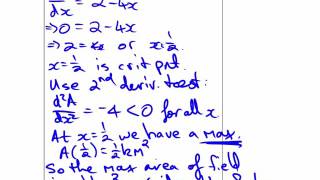 dx = 2 - 4x
⇒ 0 = 2 - 4x
⇒ 2 = 4x or x = 1/2.
x = 1/2 is crit pnt.
Use 2nd deriv. test:
d²A/dx² = -4 < 0 for all x
At x = 1/2 we have a max.
A(1/2) = 1/2 km²
So the max area of field